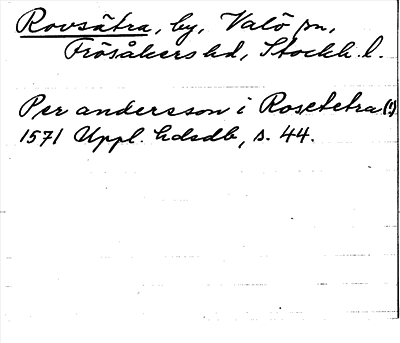 Rovsätra, by, Valö sn,
Frösåkers hd, Stockh. l.
Per andersson i Rosetetra(!)
1571 Uppl. hdsdb, s. 44.